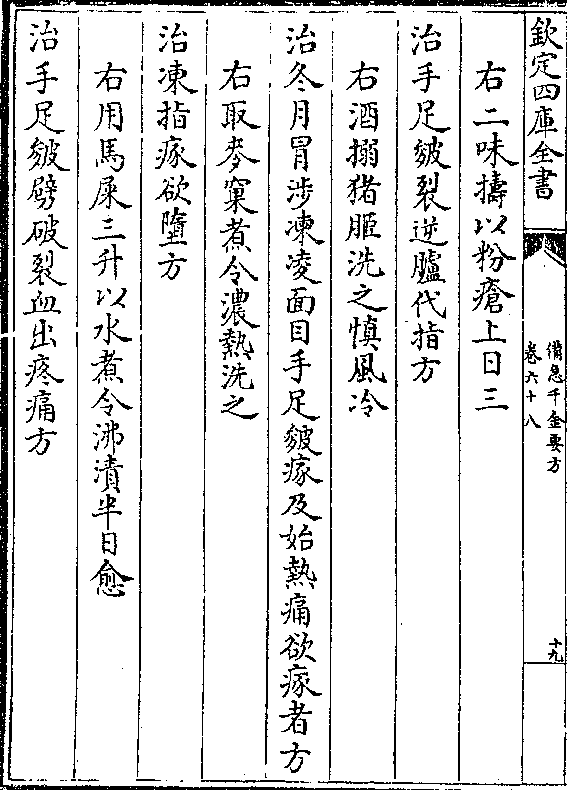 欽定四庫全書
備急千金要方
卷六十八
十九
右二味擣以粉瘡上日三
治手足皴裂逆臚代指方
右酒搦猪胰洗之慎風冷
治冬月冒涉凍凌面目手足皴瘃及始熱痛欲瘃者方
右取麥窠煮令濃熱洗之
治凍指瘃欲墮方
右用馬屎三升以水煮令沸漬半日愈
治手足皴劈破裂血出疼痛方